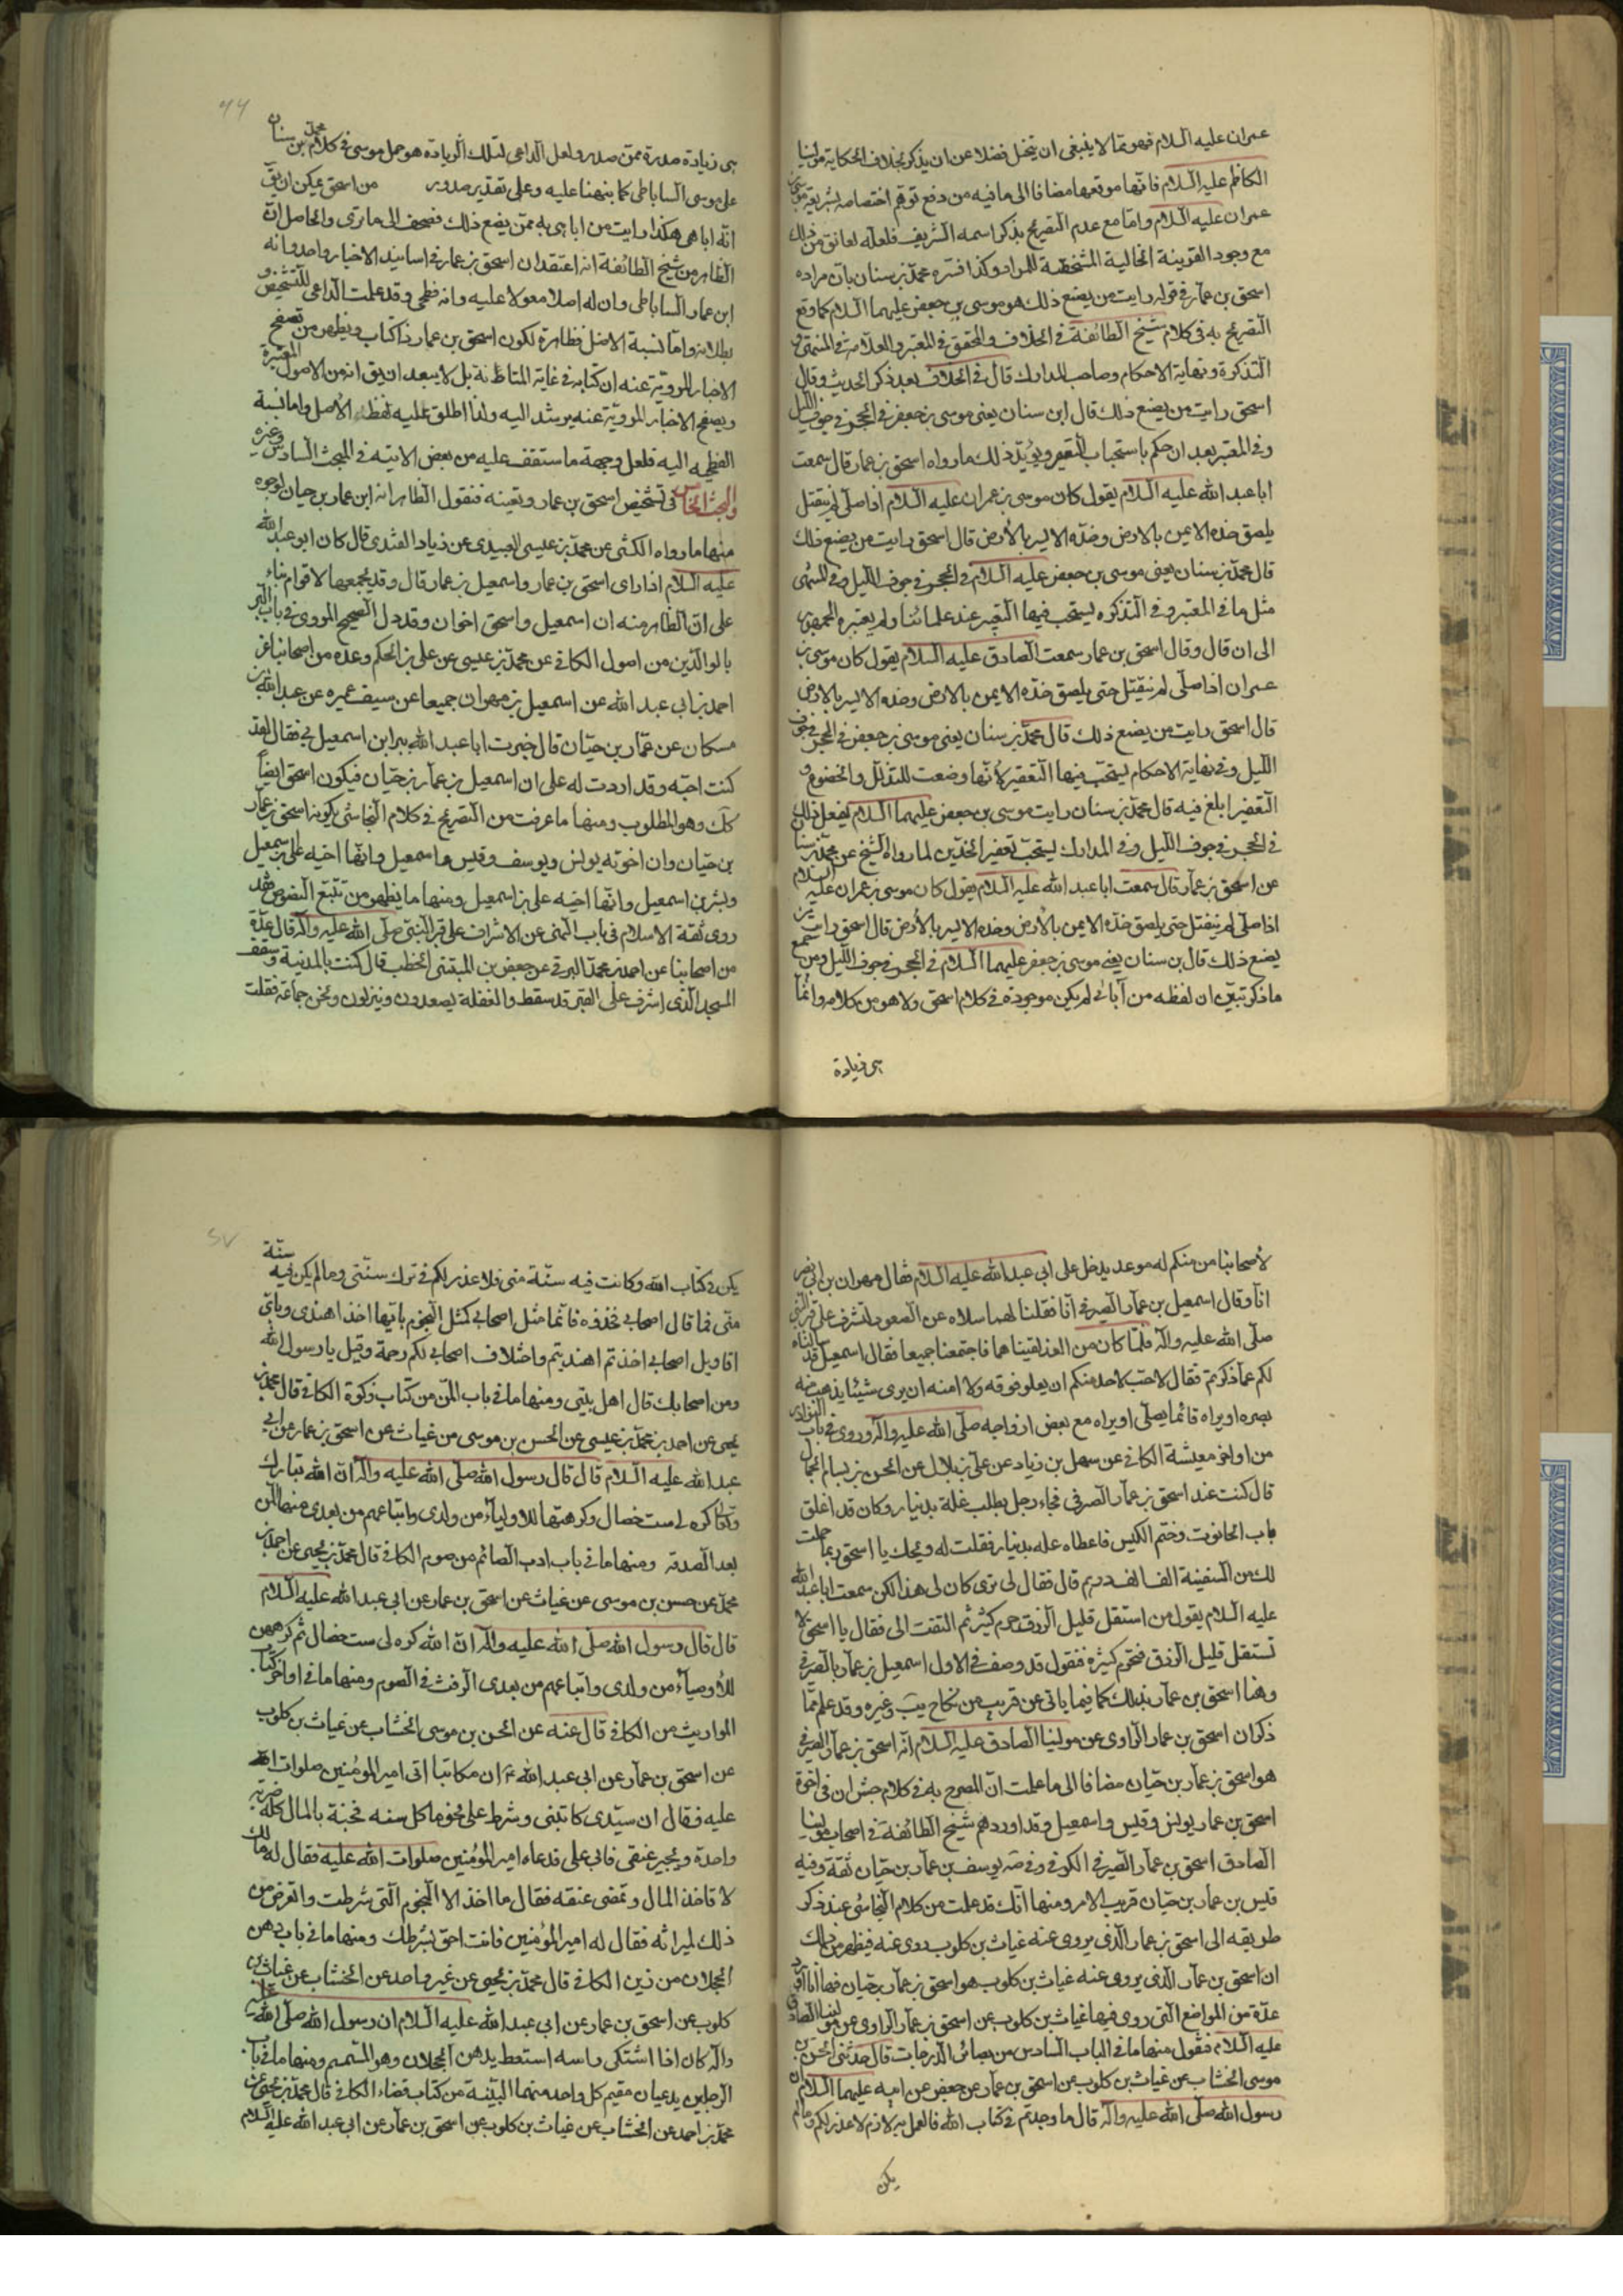 عمران عليه السلام فهو مما لا ينبغى ان يتخيل فضلا عن ان يذكر بخلاف الحكاية مولينا
الكاظم عليه السلام فانها موقعها مضافا الى ما فيه من دفع توهم اختصاصه بشريعة موسى بن
عمران عليه السلام واما مع عدم التصريح بذكر اسمه الشريف فلعله لعائق من ذلك
مع وجود القرينة الحالية المشخصة للمراد وكذا فسره محمد بن سنان بان مراده
اسحق بن عمار فى قوله رايت من يصنع ذلك هو موسى بن جعفر عليهما السلام كما وقع
التصريح به فى كلام شيخ الطائفة فى الخلاف والمحقق فى المعتبر والعلامة فى المنتهى و
التذكرة ونهاية الاحكام وصاحب المدارك قال فى الخلاف بعد ذكر الحديث وقال
اسحق رايت من يصنع ذلك قال ابن سنان يعنى موسى بن جعفر فى الحجر فى جوف الليل
وفى المعتبر بعد ان حكم باستحباب التعفير ويؤيد ذلك ما رواه اسحق بن عمار قال سمعت
ابا عبد الله عليه السلام يقول كان موسى بن عمران عليه السلام اذا صلى لم ينفتل
يلصق خده الايمن بالارض وخده الايسر بالارض قال اسحق رايت من يصنع ذلك
قال محمد بن سنان يعنى موسى بن جعفر عليه السلام فى الحجر فى جوف الليل وفى المنتهى
مثل ما فى المعتبر وفى التذكره يستحب فيها التعفير عند علمائنا ولم يعتبره الجمهور
الى ان قال وقال اسحق بن عمار سمعت الصادق عليه السلام يقول كان موسى بن
عمران اذا صلى لم ينفتل حتى يلصق خده الايمن بالارض وخده الايسر بالارض
قال اسحق رايت من يصنع ذلك قال محمد بن سنان يعنى موسى بن جعفر فى الحجر فى جوف
الليل وفى نهاية الاحكام يستحب فيها التعفير لانها وضعت للتذلل والخضوع و
التعفير ابلغ فيه قال محمد بن سنان رايت موسى بن جعفر عليهما السلام يفعل ذلك
فى الحجر فى جوف الليل وفى المدارك يستحب تعفير الخدين لما رواه الشيخ عن محمد بن سنان
عن اسحق بن عمار قال سمعت ابا عبد الله عليه السلام يقول كان موسى بن عمران عليه السلام
اذا صلى لم ينفتل حتى يلصق خده الايمن بالارض وخده الايسر بالارض قال اسحق رايت من
يصنع ذلك قال بن سنان يعنى موسى بن جعفر عليهما السلام فى الحجر فى جوف الليل ومن جميع
ما ذكر تبين ان لفظه من آبائى لم يكن موجودة فى كلام اسحق ولا هو من كلامه وانما
هى زيادة
هى زيادة صدرة ممن صدر ولعل الداعى لتلك الزيادة هو حمل موسى فى كلام محمد بن سنان
على موسى الساباطى كما نبهنا عليه وعلى تقدير صدور من اسحق يمكن ان يق
انه اباهى هكذا رايت من اباهى به ممن يضع ذلك فصحف الى ما ترى والحاصل ان
الظاهر من شيخ الطائفة انه اعتقد ان اسحق بن عمار فى اسانيد الاخبار واحد وانه
ابن عمار الساباطى وان له اصلا معولا عليه وانه فطحى وقد علمت الداعى للتشخيص و
بطلانه واما نسبة الاصل فظاهرة لكون اسحق بن عمار ذا كتاب ويظهر من تصفح
الاخبار المروية عنه ان كتابه فى غاية المتانة بل لا يبعد ان يق انه من الاصول المعتبرة
وبصفح الاخبار المروية عنه يرشد اليه ولذا اطلق عليه لفظة الاصل واما نسبة
الفطحيه اليه فلعل وجهه ما ستقف عليه من بعض الاتيه فى المبحث السادس وغيره
والمبحث الخامس فى تشخيص اسحق بن عمار وتعينه فنقول الظاهر انه ابن عمار بن حيان لوجوه
منها ما رواه الكشى عن محمد بن عيسى العبيدى عن زياد القندى قال كان ابو عبد الله
عليه السلام اذا راى اسحق بن عمار واسمعيل بن عمار قال وقد يجمعهما لاقوام بناء
على ان الظاهر منه ان اسمعيل واسحق اخوان وقد دل الصحيح المروى فى باب البر
بالوالدين من اصول الكافى عن محمد بن عيسى عن على بن الحكم وعدة من اصحابنا عن
احمد بن ابى عبد الله عن اسمعيل بن مهران جميعا عن سيف عميره عن عبد الله بن
مسكان عن عمار بن حيان قال خبرت ابا عبد الله ببر ابن اسمعيل بى فقال لقد
كنت احبه وقد ازددت له على ان اسمعيل بن عمار بن حيان فيكون اسحق ايضا
كك وهو المطلوب ومنها ما عرفت من التصريح فى كلام النجاشى بكون اسحق بن عمار
بن حيان وان اخوته يونس ويوسف وقيس واسمعيل وابنا اخيه على بن اسمعيل
وبشر بن اسمعيل وانهما اخيه على بن اسمعيل ومنها ما يظهر من تتبع النصوص فقد
روى ثقة الاسلام فى باب النهى عن الاشراف على قبر النبى صلى الله عليه وآله قال عدة
من اصحابنا عن احمد بن محمد البرقى عن جعفر بن المثنى الخطيب قال كنت بالمدينة وسقف
المسجد الذى اشرف على القبر قد سقط والفعلة يصعدون وينزلون ونحن جماعة فقلت
لاصحابنا من منكم له موعد يدخل على ابى عبد الله عليه السلام فقال مهران بن ابى نصر
انا وقال اسمعيل بن عمار الصيرفى انا فقلنا لهما سلاه عن الصعود لنشرف على قبر النبى
صلى الله عليه وآله فلما كان من الغد لقيناهما فاجتمعنا جميعا فقال اسمعيل قد سالناه
لكم عما ذكرتم فقال لا احب لاحد منكم ان يعلو فوقه ولا امنه ان يرى شيئا يذهب منه
بصره او يراه قائما يصلى او يراه مع بعض ازواجه صلى الله عليه وآله وروى فى باب النوادر
من اواخر معيشة الكافى عن سهل بن زياد عن على بن بلال عن الحسن بن بسام الجمال
قال كنت عند اسحق بن عمار الصرفى فجاء رجل يطلب غلة بدينار وكان قد اغلق
باب الحانوت وختم الكيس فاعطاه غله بدينار فقلت له ويحك يا اسحق ربما حملت
لك من السفينة الف الف درهم قال فقال لى ترى كان لى هذا لكن سمعت ابا عبد الله
عليه السلام يقول من استقل قليل الرزق حرم كثيره ثم التفت الى فقال يا اسحق لا
تستقل قليل الرزق فتحرم كثيره فنقول قد وصف فى الاول اسمعيل بن عمار بالصيرفى
وهنا اسحق بن عمار بذلك كما فيما ياتى عن قريب من نكاح يب وغيره وقد علم مما
ذكر ان اسحق بن عمار الراوى عن مولينا الصادق عليه السلام انه اسحق بن عمار الصيرفى
هو اسحق بن عمار بن حيان مضافا الى ما علمت ان المصرح به فى كلام جش ان فى اخوة
اسحق بن عمار يونس وقيس واسمعيل وقد اوردهم شيخ الطائفة فى اصحاب مولينا
الصادق اسحق بن عمار الصيرفى الكوفى وفى صه يوسف بن عمار بن حيان ثقة وفيه
قيس بن عمار بن حيان قريب الامر ومنها انك قد علمت من كلام النجاشى عند ذكر
طريقه الى اسحق بن عمار الذى يروى عنه غياث بن كلوب روى عنه فيظهر من ذلك
ان اسحق بن عمار الذى يروى عنه غياث بن كلوب هو اسحق بن عمار بن حيان فها انا اورد
عدة من المواضع التى روى فيها غياث بن كلوب عن اسحق بن عمار الراوى عن مولينا الصادق
عليه السلام فنقول منها ما فى الباب السادس من بصائر الدرجات قال حدثنى الحسن بن
موسى الخشاب عن غياث بن كلوب عن اسحق بن عمار عن جعفر عن ابيه عليهما السلام ان
رسول الله صلى الله عليه وآله قال ما وجدتم فى كتاب الله فالعمل به لازم لا عذر لكم وما لم
يكن
يكن فى كتاب الله وكانت فيه سنة منى فلا عذر لكم فى ترك سنتى وما لم يكن فيه سنة
منى فما قال اصحابى فخذوه فانما مثل اصحابى كمثل النجوم بايها اخذ اهتدى وباى
اقاويل اصحابى اخذتم اهتديتم واختلاف اصحابى لكم رحمة وقيل يا رسول الله
ومن اصحابك قال اهل بيتى ومنها ما فى باب المن من كتاب زكوة الكافى قال محمد بن
يحيى عن احمد بن محمد بن عيسى عن الحسن بن موسى عن غياث عن اسحق بن عمار عن ابى
عبد الله عليه السلام قال قال رسول الله صلى الله عليه وآله ان الله تبارك
وتعالى كره لى ست خصال وكرهتها للاولياء من ولدى واتباعهم من بعدى منها المن
بعد الصدقه ومنها ما فى باب ادب الصائم من صوم الكافى قال محمد بن يحيى عن احمد بن
محمد عن حسن بن موسى عن غياث عن اسحق بن عمار عن ابى عبد الله عليه السلام
قال قال رسول الله صلى الله عليه وآله ان الله كره لى ست خصال ثم كرههن
للاوصياء من ولدى واتباعهم من بعدى الرفث فى الصوم ومنها ما فى اواخر كتاب
المواريث من الكافى قال عنه عن الحسن بن موسى الخشاب عن غياث بن كلوب
عن اسحق بن عمار عن ابى عبد الله ع ان مكاتبا اتى امير المؤمنين صلوات الله
عليه فقال ان سيدى كاتبنى وشرط على نجوما كل سنه فجئته بالمال كله ضربة
واحدة ويجيز عتقى فابى على فدعاه امير المؤمنين صلوات الله عليه فقال له مالك
لا تاخذ المال وتمضى عتقه فقال ما اخذ الا النجوم التى شرطت واتعرض من
ذلك لميراثه فقال له امير المؤمنين فانت احق بشرطك ومنها ما فى باب دهن
الجلان من زين الكافى قال محمد بن يحيى عن غير واحد عن الخشاب عن غياث بن
كلوب عن اسحق بن عمار عن ابى عبد الله عليه السلام ان رسول الله صلى الله عليه
وآله كان اذا اشتكى راسه استعط بدهن الجلجلان وهو السمسم ومنها ما فى باب
الرجلين يدعيان مقيم كل واحد منهما البينة من كتاب قضاء الكافى قال محمد بن يحيى عن
محمد بن احمد عن الخشاب عن غياث بن كلوب عن اسحق بن عمار عن ابى عبد الله عليه السلام